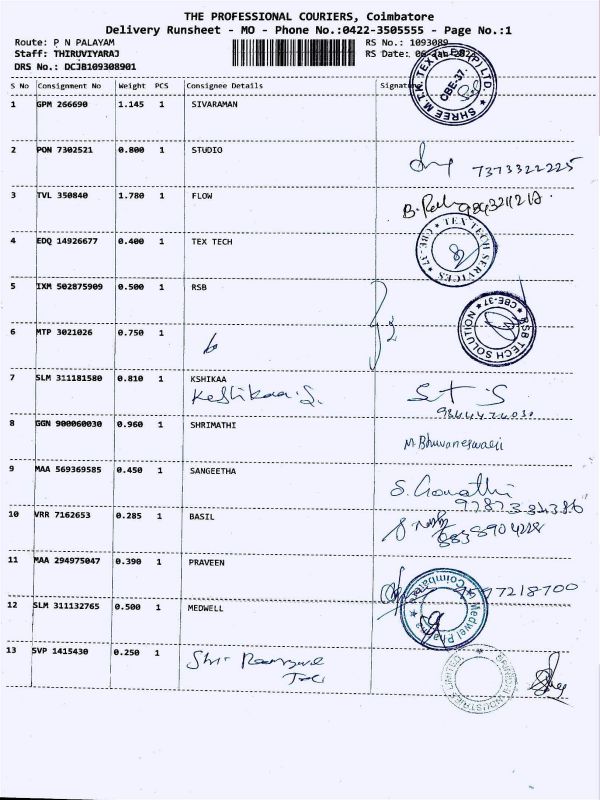 THE PROFESSIONAL COURIERS, Coimbatore
Delivery Runsheet - MO - Phone No.:0422-3505555 - Page No.:1
Route: P N PALAYAM
RS No.: 1093089
Staff: THIRUVIYARAJ
RS Date:
DRS No.: DCJB109308901
S No Consignment No Weight PCS Consignee Details Signature
SHREE M.T.K. TEXTILES (P) LTD. CBE-37.
1 GPM 266690 1.145 1 SIVARAMAN
2 PON 7302521 0.800 1 STUDIO
7373322225
3 TVL 350840 1.780 1 FLOW
4 EDQ 14926677 0.400 1 TEX TECH
TEX TECH SERVICES
5 IXM 502875909 0.500 1 RSB
RSB TECH SOLUTION CBE-37
6 MTP 3021026 0.750 1
7 SLM 311181580 0.810 1 KSHIKAA
S T S
8 GGN 900060030 0.960 1 SHRIMATHI
M. Bhuvaneswari
9 MAA 569369585 0.450 1 SANGEETHA
S. Gomathi
10 VRR 7162653 0.285 1 BASIL
11 MAA 294975047 0.390 1 PRAVEEN
97218700
12 SLM 311132765 0.500 1 MEDWELL
Coimbatore
13 SVP 1415430 0.250 1